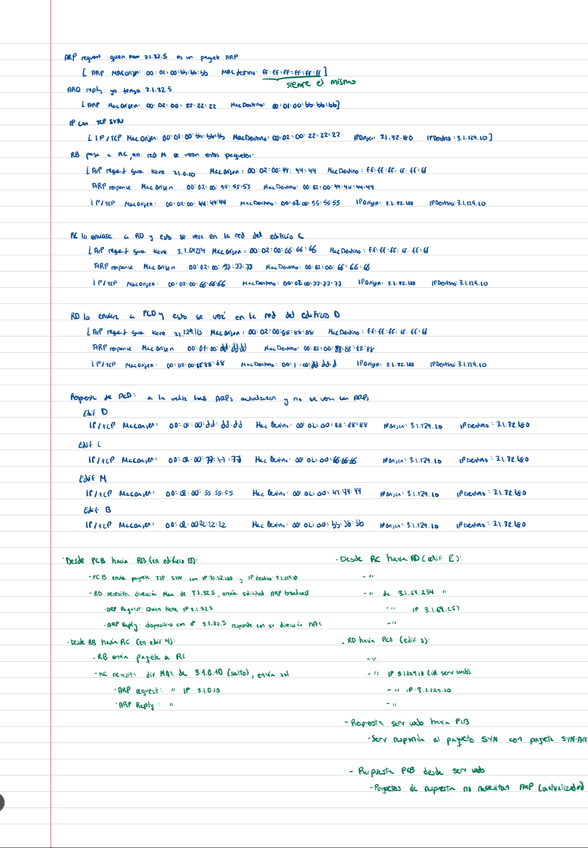 ARP request quien tiene 3.1.32.5 es un paquete ARP
[ ARP MAC Origen: 00:01:00:bb:bb:bb MAC destino: ff:ff:ff:ff:ff:ff ]
siempre el mismo
ARP reply yo tengo 3.1.32.5
[ ARP Mac Origen: 00:02:00:22:22:22 Mac Destino: 00:01:00:bb:bb:bb]
IP con TCP SYN
[ IP/TCP Mac Origen: 00:01:00:bb:bb:bb Mac Destino: 00:02:00:22:22:22 IP Origen: 3.1.32.180 IP Destino: 3.1.129.10 ]
RB pasa a RC, en red M se verán estos paquetes:
[ ARP request quien tiene 3.1.0.10 Mac Origen: 00:02:00:44:44:44 Mac Destino: ff:ff:ff:ff:ff:ff
ARP response Mac Origen 00:02:00:55:55:55 Mac Destino: 00:02:00:44:44:44
IP/TCP Mac Origen: 00:02:00:44:44:44 Mac Destino: 00:02:00:55:55:55 IP Origen: 3.1.32.180 IP Destino: 3.1.129.10
RC lo enviará a RD y esto se verá en la red del edificio C
[ ARP request quien tiene Mac Origen: 00:02:00:66:66:66 Mac Destino: ff:ff:ff:ff:ff:ff
ARP response Mac Origen: 00:02:00:77:77:77 Mac Destino: 00:02:00:66:66:66
IP/TCP Mac Origen: 00:02:00:66:66:66 Mac Destino: 00:02:00:77:77:77 IP Origen: 3.1.32.180 IP Destino: 3.1.129.10
RD lo enviará a PCD y esto se verá en la red del edificio D
[ ARP request quien tiene 3.1.129.10 Mac Origen: 00:02:00:88:88:88 Mac Destino: ff:ff:ff:ff:ff:ff
ARP response Mac Origen 00:01:00:dd:dd:dd Mac Destino: 00:02:00:88:88:88
IP/TCP Mac Origen: 00:02:00:88:88:88 Mac Destino: IP Origen: 3.1.32.180 IP Destino: 3.1.129.10
Respuesta de PCD: a la vuelta las ARPs y no se verán los ARPs
Edif D
IP/TCP Mac Origen: 00:01:00:dd:dd:dd Mac Destino: 00:02:00:88:88:88 IP Origen: 3.1.129.10 IP Destino: 3.1.32.180
Edif C
IP/TCP Mac Origen: 00:02:00:77:77:77 Mac Destino: 00:02:00:66:66:66 IP Origen: 3.1.129.10 IP Destino: 3.1.32.180
Edif M
IP/TCP Mac Origen: 00:02:00:55:55:55 Mac Destino: 00:02:00:44:44:44 IP Origen: 3.1.129.10 IP Destino: 3.1.32.180
Edif B
IP/TCP Mac Origen: 00:02:00:22:22:22 Mac Destino: 00:01:00:bb:bb:bb IP Origen: 3.1.129.10 IP Destino: 3.1.32.180
- Desde PCB hacia RB (en edificio B):
- PCB envía paquete TCP SYN con IP 3.1.32.180 y IP destino 3.1.129.10
- RD necesita dirección Mac de 3.1.32.5, envía solicitud ARP broadcast
- ARP Request: Quien tiene IP 3.1.32.5
- ARP Reply: dispositivo con IP 3.1.32.5 responde con su dirección MAC
- Desde RB hacia RC (en edif M):
- RB envía paquete a RC
- RC necesita dir MAC de 3.1.0.10 (salto), envía sol
- ARP request: " IP 3.1.0.10
- ARP Reply: "
- Desde RC hacia RD (edif C):
- "
- " de 3.1.64.254 "
- " IP
- "
- RD hacia PCD (edif D):
- "
- " IP 3.1.129.10 (id serv web)
- " IP: 3.1.129.10
- "
- Respuesta serv web hacia PCB
- Serv responde al paquete SYN con paquete SYN-ACK
- Respuesta PCB desde serv web
- Paquetes de respuesta no necesitan ARP (actualizadas)